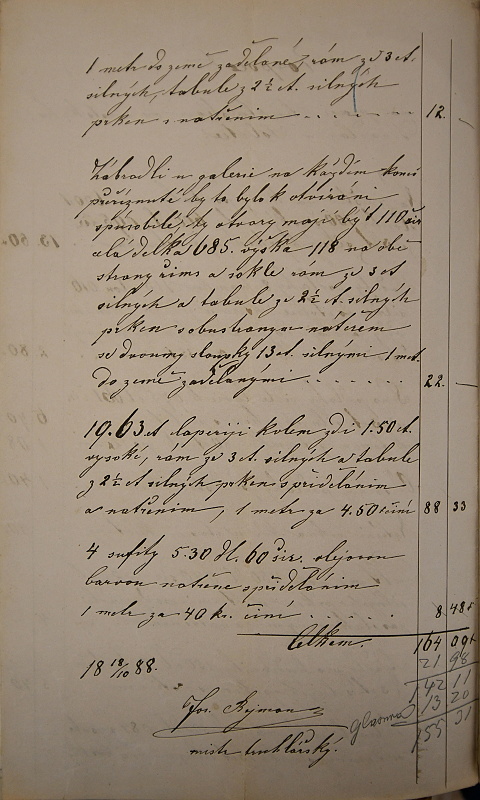 1 metr do země zadělané, rám ze 3 ct.
silných, tabule z 2½ ct. silných
prken s natřením 12. –
Zábradlí u galerie na každém konci
přeříznuté by to bylo k otvírání
spůsobilé, ty otvory mají být 110 šir
celá délka 685. výška 118 na obě
strany říms a sokle rám ze 3 ct
silných a tabule ze 2½ ct. silných
prken s obustranym nátěrem
se dvoumy sloupky 13 ct. silnými 1 met.
do země zadělanými 22. –
19.63 ct laperiji kolem zdi 1.50 ct.
vysoké, rám ze 3 ct. silných a tabule
z 2½ ct silných prken s přiděláním
a natřením, 1 metr za 4.50 činí 88 33
4 sufity 5.30 dl. 60 šir. olejovou
barvou natřené s přiděláním
1 metr za 40 kr. činí 8 48
Celkem. 164 09
18 18/10 88. 21 98
142 11
Jos. Rejman 13 20
155 31
mistr truhlářský.